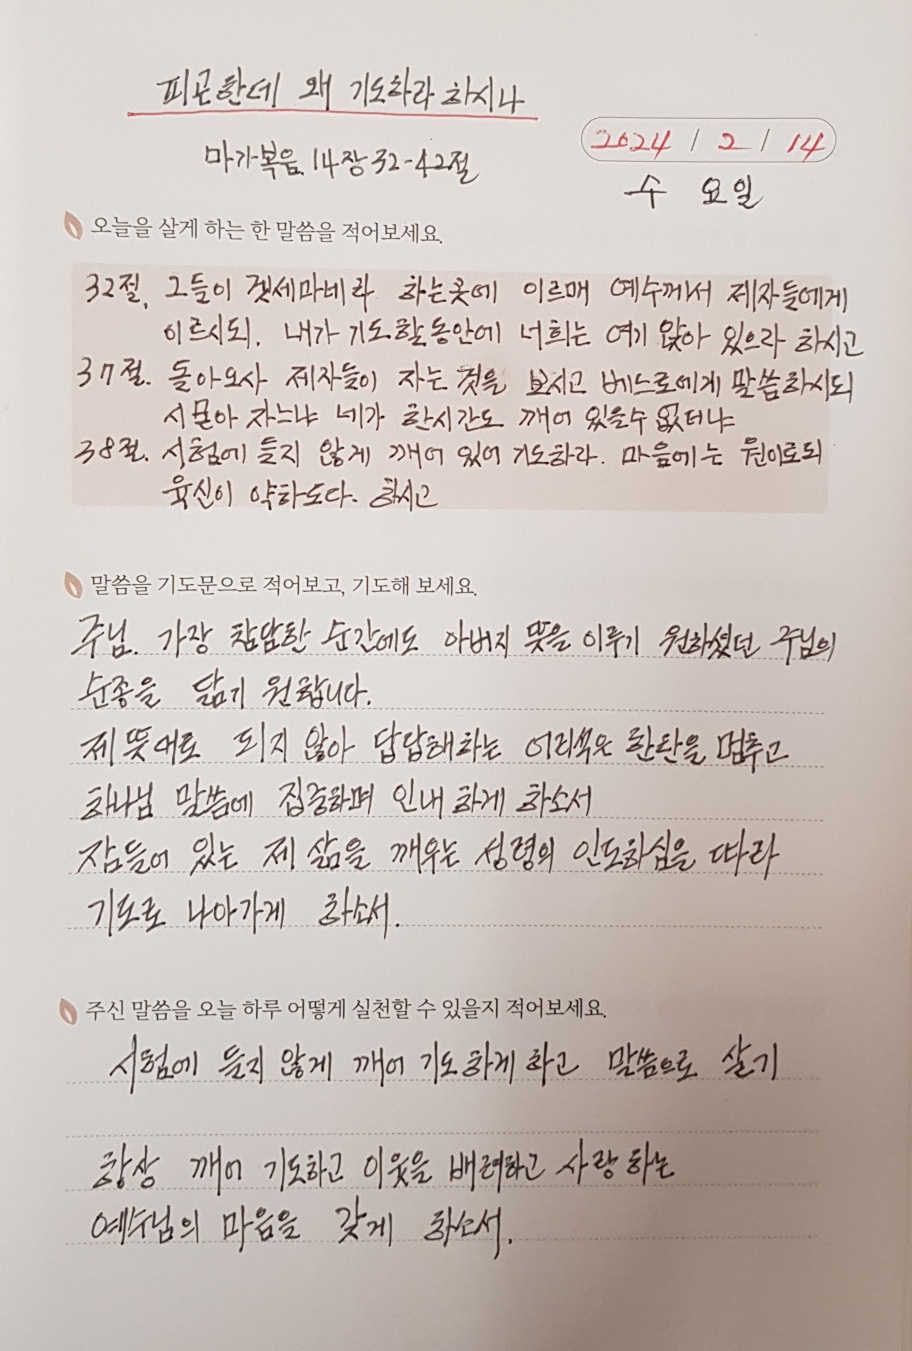 피곤한데 왜 기도하라 하시나
마가복음 14장 32-42절
2024 / 2 / 14
수 요일
오늘을 살게 하는 한 말씀을 적어보세요.
32절. 그들이 겟세마네라 하는 곳에 이르매 예수께서 제자들에게
이르시되. 내가 기도할 동안에 너희는 여기 앉아 있으라 하시고
37절. 돌아오사 제자들이 자는 것을 보시고 베드로에게 말씀하시되
시몬아 자느냐 네가 한시간도 깨어 있을수 없더냐
38절. 시험에 들지 않게 깨어 있어 기도하라. 마음에는 원이로되
육신이 약하도다. 하시고
말씀을 기도문으로 적어보고, 기도해 보세요.
주님. 가장 참담한 순간에도 아버지 뜻을 이루기 원하셨던 주님의
순종을 닮기 원합니다.
제 뜻대로 되지 않아 답답해하는 어리석은 한탄을 멈추고
하나님 말씀에 집중하며 인내하게 하소서
잠들어 있는 제 삶을 깨우는 성령의 인도하심을 따라
기도로 나아가게 하소서.
주신 말씀을 오늘 하루 어떻게 실천할 수 있을지 적어보세요.
시험에 들지 않게 깨어 기도하게 하고 말씀으로 살기
항상 깨어 기도하고 이웃을 배려하고 사랑하는
예수님의 마음을 갖게 하소서.